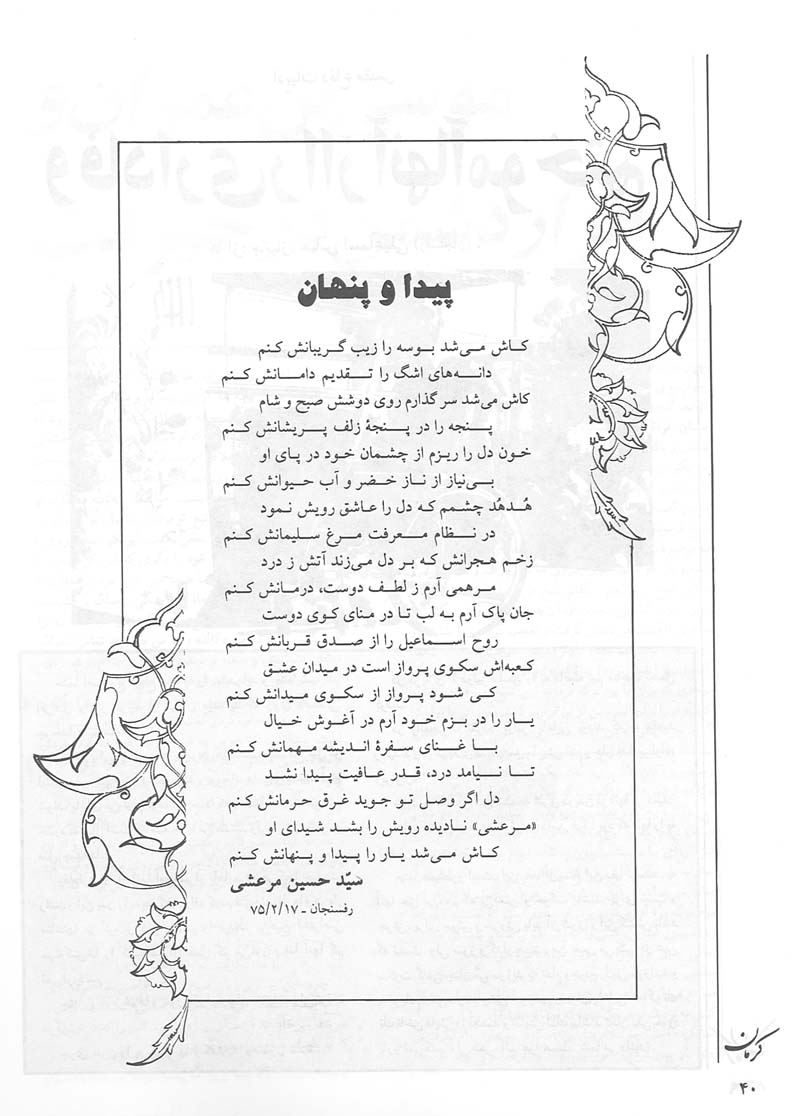 پیدا و پنهان
کاش می‌شد بوسه را زیب گریبانش کنم
دانه‌های اشگ را تقدیم دامانش کنم
کاش می‌شد سر گذارم روی دوشش صبح و شام
پنجه را در پنجۀ زلف پریشانش کنم
خون دل را ریزم از چشمان خود در پای او
بی‌نیاز از ناز خضر و آب حیوانش کنم
هُدهُد چشمم که دل را عاشق رویش نمود
در نظام معرفت مرغ سلیمانش کنم
زخم هجرانش که بر دل می‌زند آتش ز درد
مرهمی آرم ز لطف دوست، درمانش کنم
جان پاک آرم به لب تا در منای کوی دوست
روح اسماعیل را از صدق قربانش کنم
کعبه‌اش سکوی پرواز است در میدان عشق
کی شود پرواز از سکوی میدانش کنم
یار را در بزم خود آرم در آغوش خیال
با غنای سفرۀ اندیشه مهمانش کنم
تا نیامد درد، قدر عافیت پیدا نشد
دل اگر وصل تو جوید غرق حرمانش کنم
«مرعشی» نادیده رویش را بشد شیدای او
کاش می‌شد یار را پیدا و پنهانش کنم
سیّد حسین مرعشی
رفسنجان ـ ۷۵/۲/۱۷
کرمان
۴۰